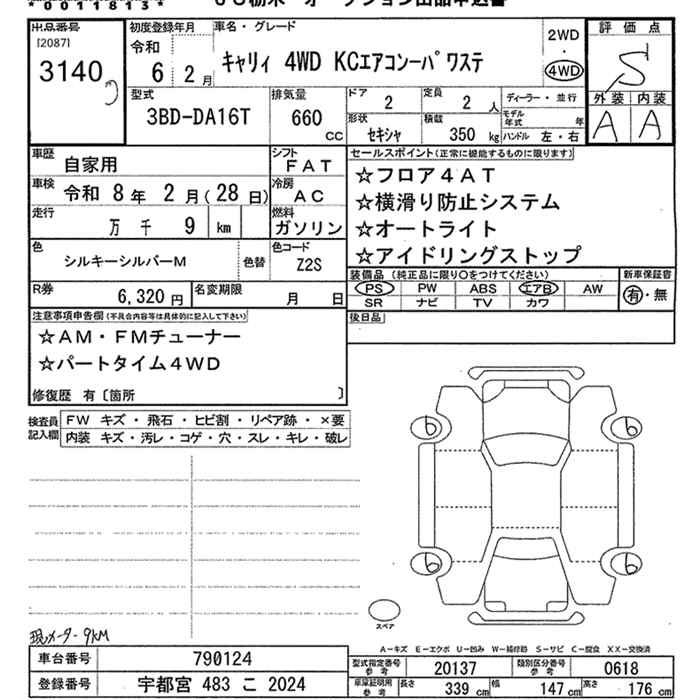 *0011813*
出品番号
[2087]
3140
初度登録年月
令和
6 2月
車名・グレード
キャリィ 4WD KCエアコンーパワステ
2WD
・
4WD
評価点
S
外装 内装
A A
型式
3BD-DA16T
排気量
660
cc
ドア
2
定員
2 人
ディーラー・並行
形状
セキシャ
積載
350 kg
モデル年式 年
ハンドル 左・右
車歴
自家用
シフト
FAT
車検
令和 8年 2月(28日)
冷房
AC
走行
万 千 9 km
燃料
ガソリン
色
シルキーシルバーM
色替
色コード
Z2S
R券
6,320円
名変期限
月 日
セールスポイント(正常に機能するものに限ります)
☆フロア4AT
☆横滑り防止システム
☆オートライト
☆アイドリングストップ
装備品(純正品に限り○をつけてください)
PS PW ABS エアB AW
SR ナビ TV カワ
新車保証書
有・無
後日品
注意事項申告欄(不具合内容等は具体的に記入して下さい)
☆AM・FMチューナー
☆パートタイム4WD
修復歴 有〔箇所 〕
検査員記入欄
FW キズ・飛石・ヒビ割・リペア跡・×要
内装 キズ・汚レ・コゲ・穴・スレ・キレ・破レ
b b
b b
スペア
現メーター9KM
A-キズ E-エクボ U-凹み W-補修跡 S-サビ C-腐食 XX-交換済
車台番号 790124
登録番号 宇都宮 483 こ 2024
型式指定番号参考 20137
類別区分番号参考 0618
車庫証明用参考 長さ 339 cm 幅 147 cm 高さ 176 cm